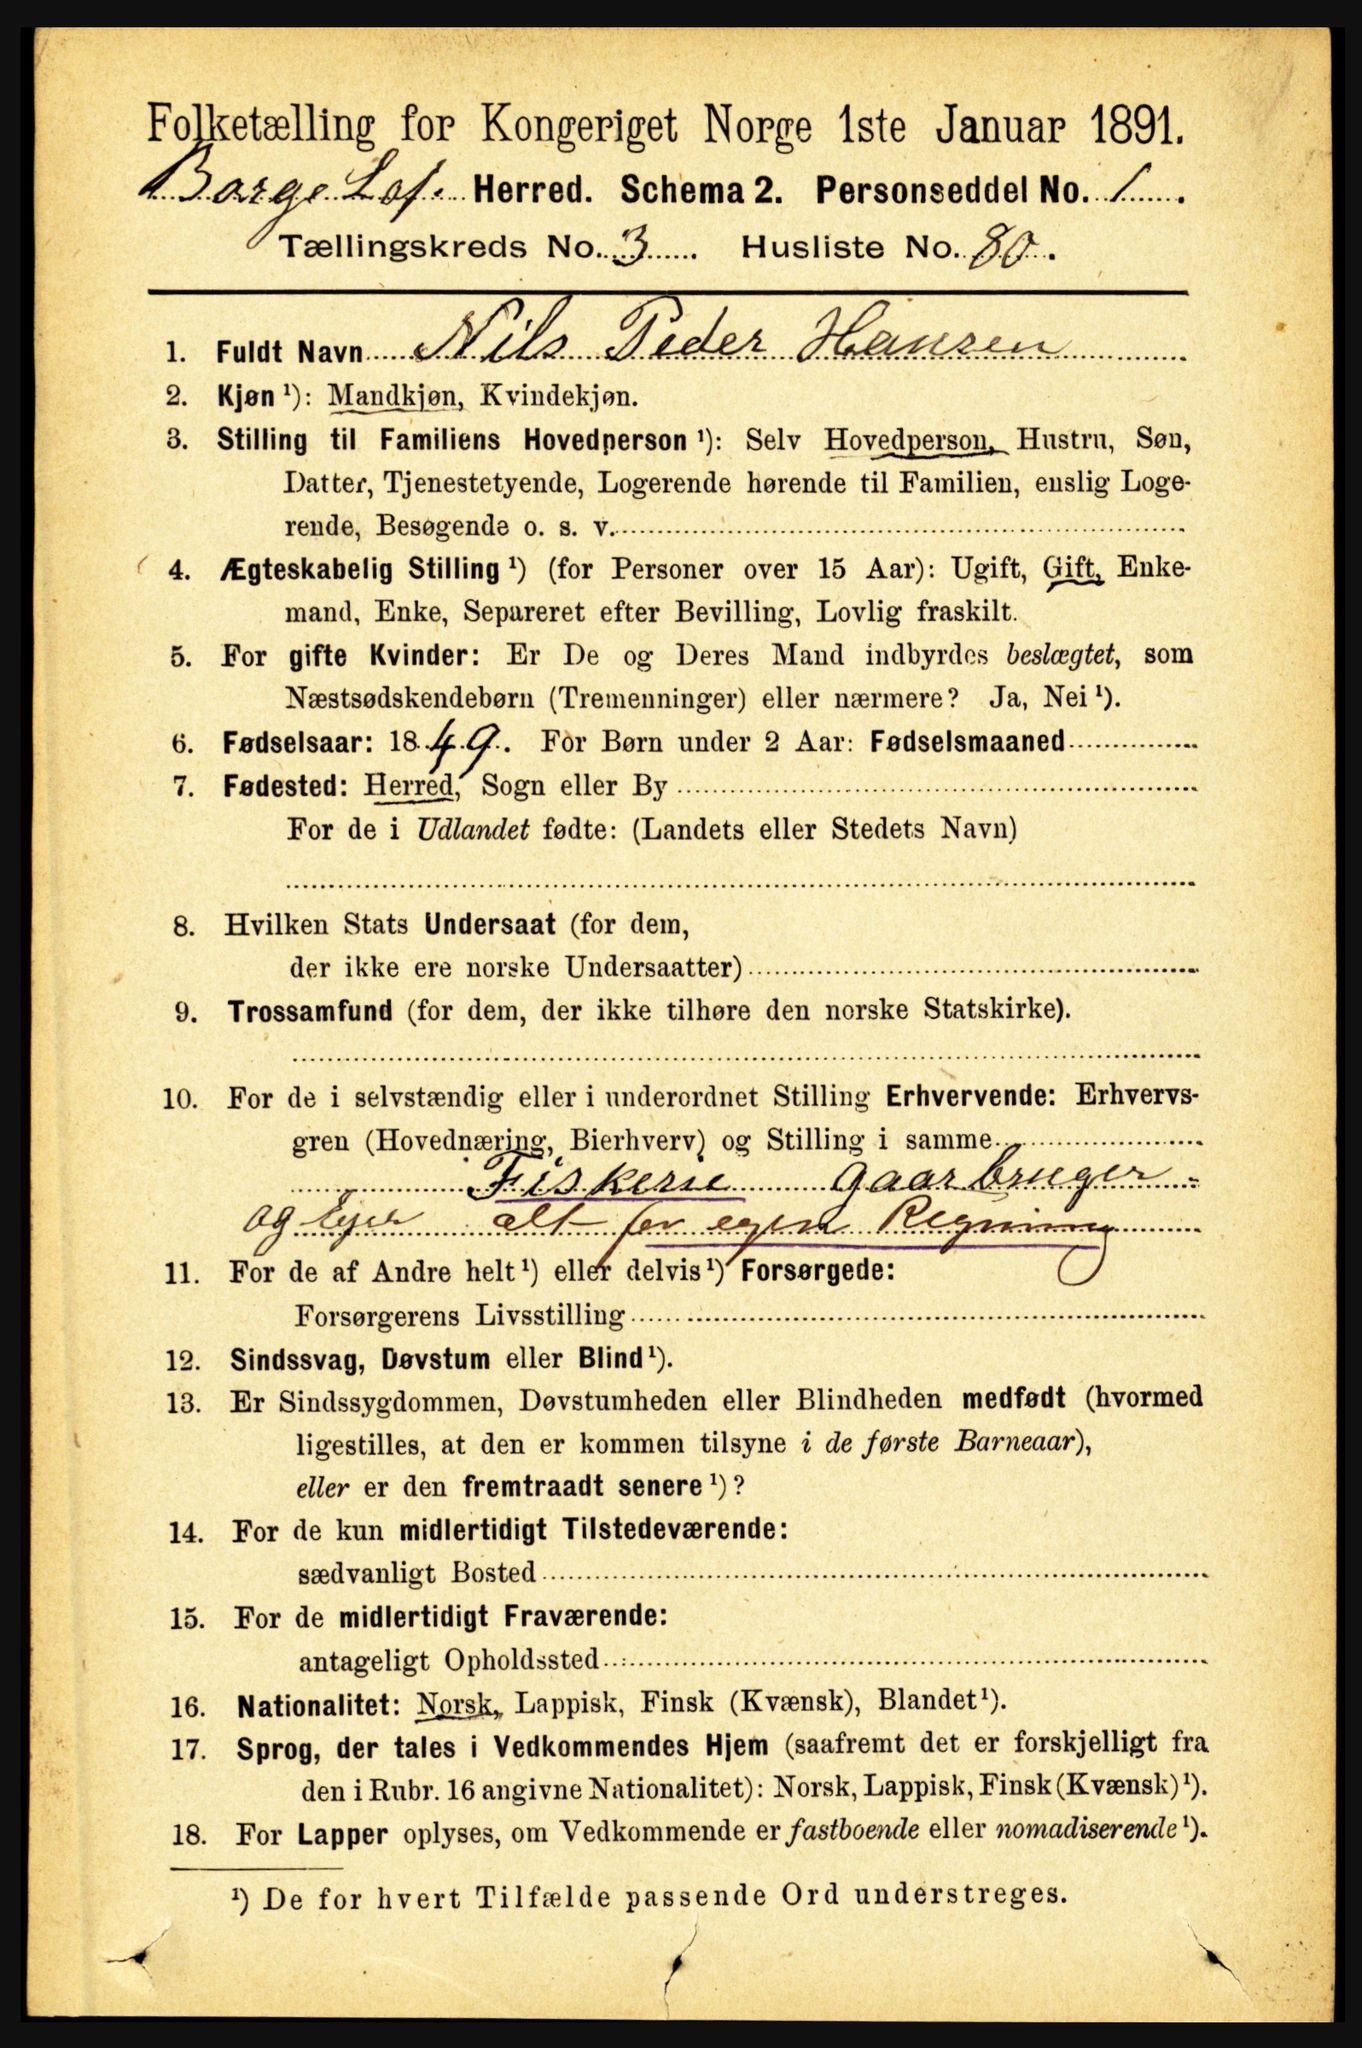 Folketælling for Kongeriget Norge 1ste Januar 1891.
Borge Lof. Herred. Schema 2. Personseddel No. 1.
Tællingskreds No. 3. Husliste No. 80.
1. Fuldt Navn Nils Peder Hansen
2. Kjøn ¹): Mandkjøn, Kvindekjøn.
3. Stilling til Familiens Hovedperson ¹): Selv Hovedperson, Hustru, Søn,
Datter, Tjenestetyende, Logerende hørende til Familien, enslig Loge-
rende, Besøgende o. s. v.
4. Ægteskabelig Stilling ¹) (for Personer over 15 Aar): Ugift, Gift, Enke-
mand, Enke, Separeret efter Bevilling, Lovlig fraskilt.
5. For gifte Kvinder: Er De og Deres Mand indbyrdes beslægtet, som
Næstsødskendebørn (Tremenninger) eller nærmere? Ja, Nei ¹).
6. Fødselsaar: 1849. For Børn under 2 Aar: Fødselsmaaned
7. Fødested: Herred, Sogn eller By
For de i Udlandet fødte: (Landets eller Stedets Navn)
8. Hvilken Stats Undersaat (for dem,
der ikke ere norske Undersaatter)
9. Trossamfund (for dem, der ikke tilhøre den norske Statskirke).
10. For de i selvstændig eller i underordnet Stilling Erhvervende: Erhvervs-
gren (Hovednæring, Bierhverv) og Stilling i samme
Fiskerie gaarbruger
og Ejer alt for egen Regning
11. For de af Andre helt ¹) eller delvis ¹) Forsørgede:
Forsørgerens Livsstilling
12. Sindssvag, Døvstum eller Blind ¹).
13. Er Sindssygdommen, Døvstumheden eller Blindheden medfødt (hvormed
ligestilles, at den er kommen tilsyne i de første Barneaar),
eller er den fremtraadt senere ¹)?
14. For de kun midlertidigt Tilstedeværende:
sædvanligt Bosted
15. For de midlertidigt Fraværende:
antageligt Opholdssted
16. Nationalitet: Norsk, Lappisk, Finsk (Kvænsk), Blandet ¹).
17. Sprog, der tales i Vedkommendes Hjem (saafremt det er forskjelligt fra
den i Rubr. 16 angivne Nationalitet): Norsk, Lappisk, Finsk (Kvænsk) ¹).
18. For Lapper oplyses, om Vedkommende er fastboende eller nomadiserende ¹).
¹) De for hvert Tilfælde passende Ord understreges.